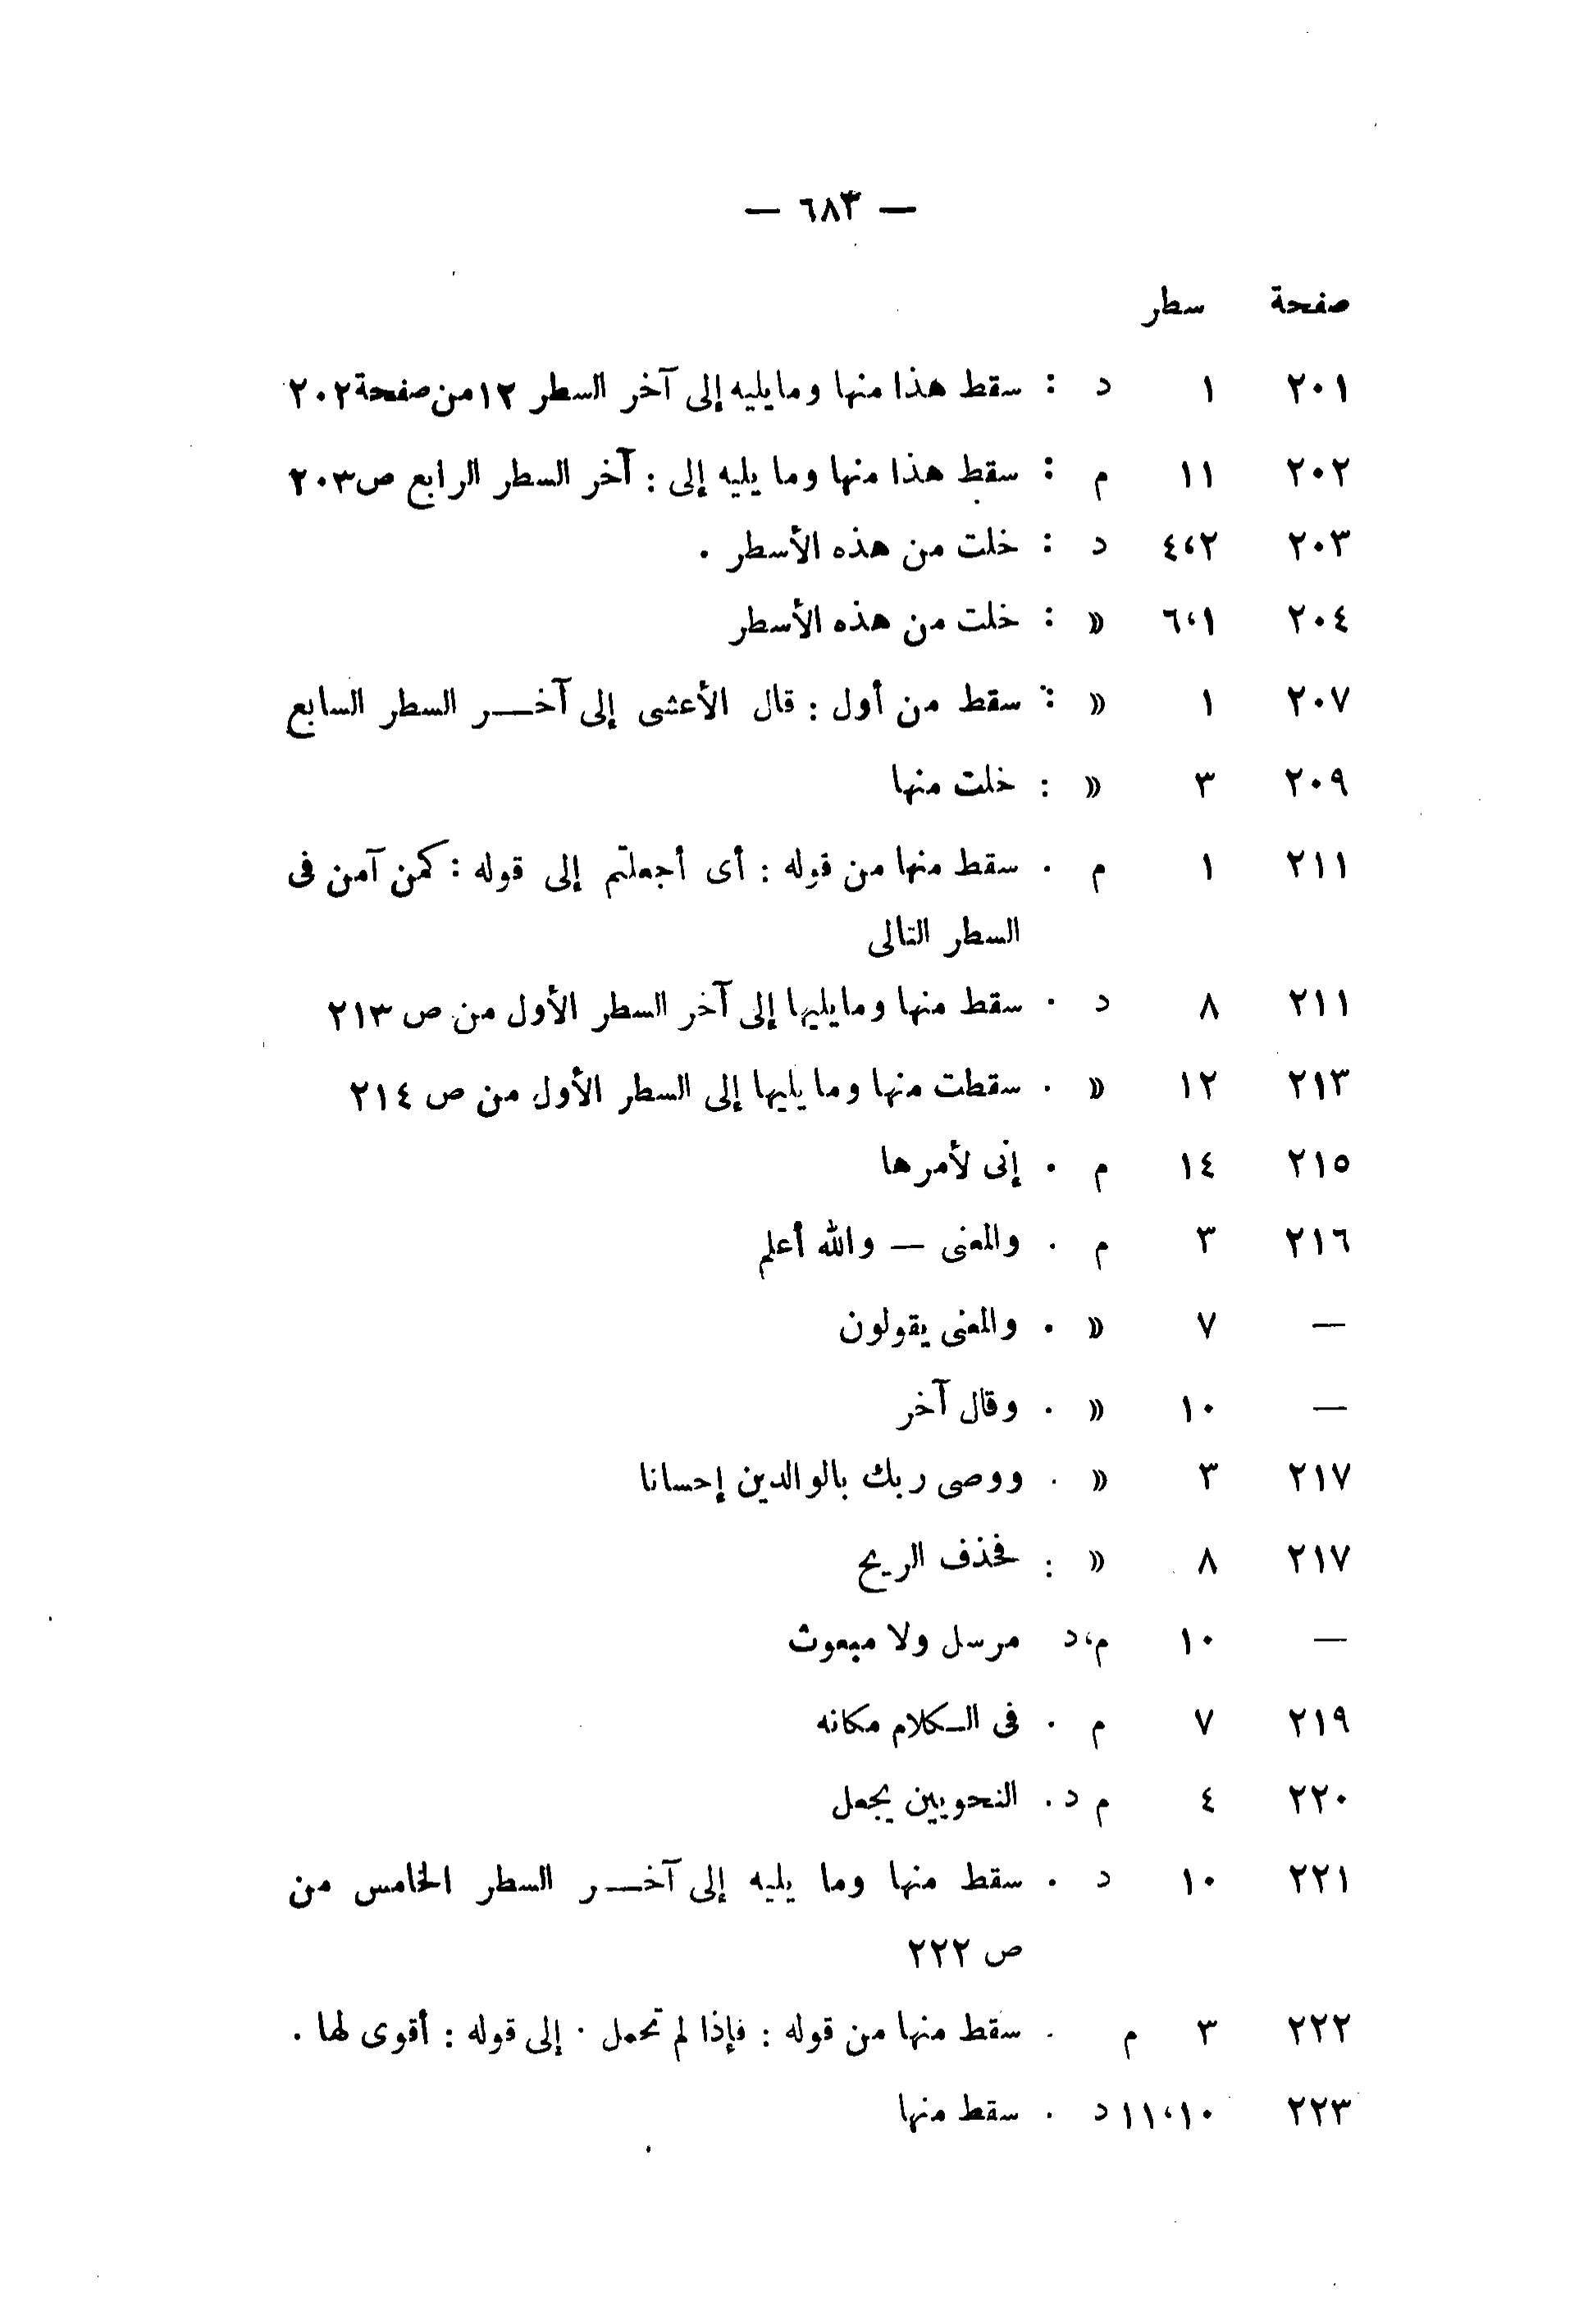 — ٦٨٣ —
صفحة سطر
٢٠١ ١ د : سقط هذا منها ومايليه إلى آخر السطر ١٢من صفحة٢٠٢
٢٠٢ ١١ م : سقط هذا منها وما يليه إلى : آخر السطر الرابع ص٢٠٣
٢٠٣ ٤،٢ د : خلت من هذه الأسطر .
٢٠٤ ٦،١ » : خلت من هذه الأسطر
٢٠٧ ١ » : سقط من أول : قال الأعشى إلى آخـــر السطر السابع
٢٠٩ ٣ » : خلت منها
٢١١ ١ م . سقط منها من قوله : أى أجعلتم إلى قوله : كمن آمن فى
السطر التالى
٢١١ ٨ د . سقط منها ومايليها إلى آخر السطر الأول من ص ٢١٣
٢١٣ ١٢ » . سقطت منها وما يليها إلى السطر الأول من ص ٢١٤
٢١٥ ١٤ م . إنى لأمرها
٢١٦ ٣ م . والمعنى — والله أعلم
— ٧ » . والمعنى يقولون
— ١٠ » . وقال آخر
٢١٧ ٣ » . ووصى ربك بالوالدين إحسانا
٢١٧ ٨ » : فحذف الريح
— ١٠ م،د مرسل ولا مبعوث
٢١٩ ٧ م . فى الـكلام مكانه
٢٢٠ ٤ م د . النحويين يجعل
٢٢١ ١٠ د . سقط منها وما يليه إلى آخـــر السطر الخامس من
ص ٢٢٢
٢٢٢ ٣ م . سقط منها من قوله : فإذا لم تحمل . إلى قوله : أقوى لها .
٢٢٣ ١١،١٠ د . سقط منها